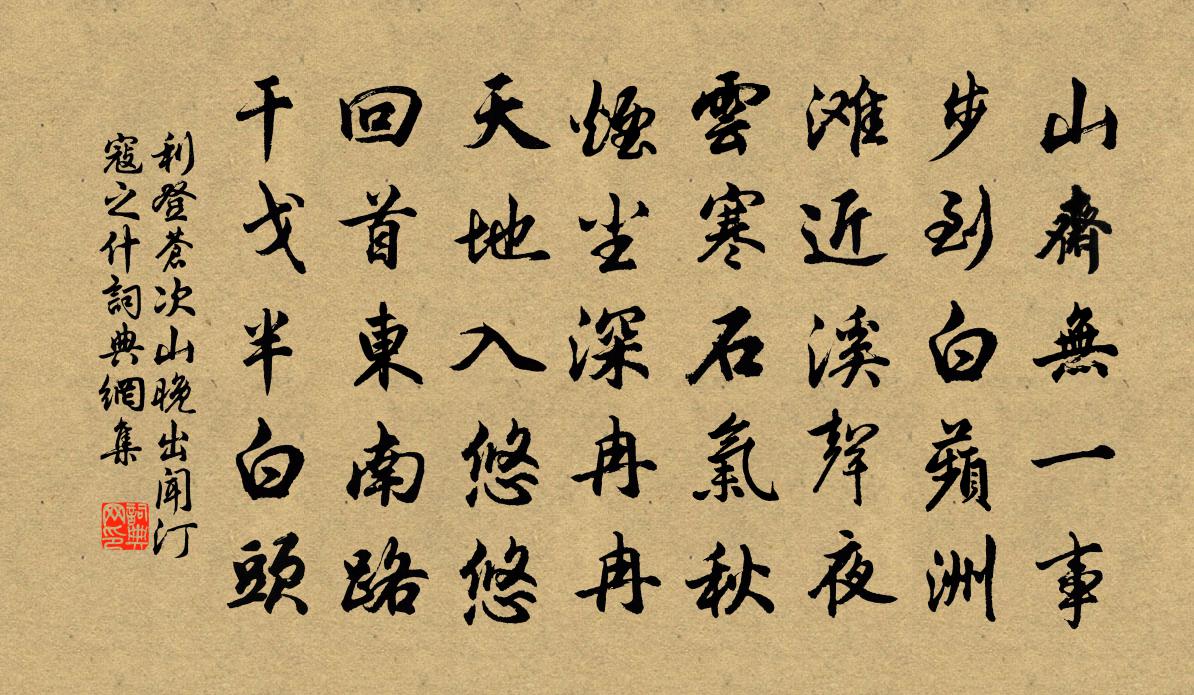 山齋無一事
步到白蘋洲
滩近溪聲夜
雲寒石氣秋
煙尘深冉冉
天地入悠悠
回首東南路
干戈半白頭
利登蒼次山晚出闻汀
寇之什詞典網集
詞典
网印